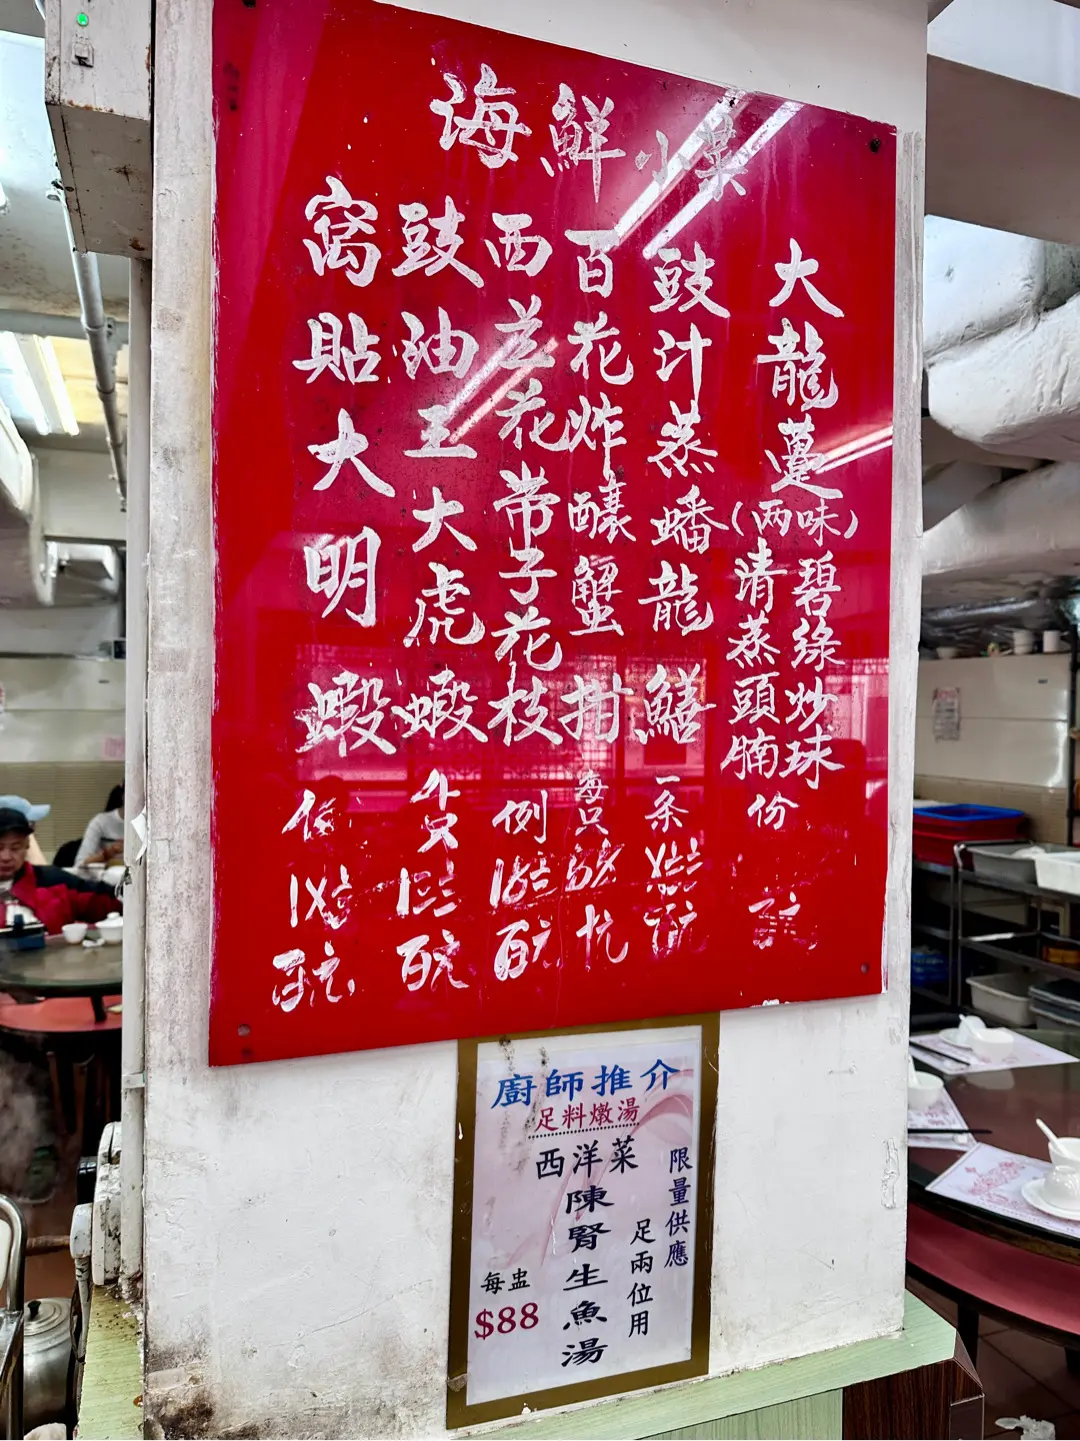 海鮮小菜
大龍躉
(両味)
碧綠炒球
清蒸頭腩
份
豉汁蒸蟠龍鱔
一条
百花炸釀蟹拑
每只
西兰花帶子花枝
例
豉油王大虎蝦
窩貼大明蝦
廚師推介
足料燉湯
限量供應
足兩位用
西洋菜
陳腎生魚湯
每盅
$88